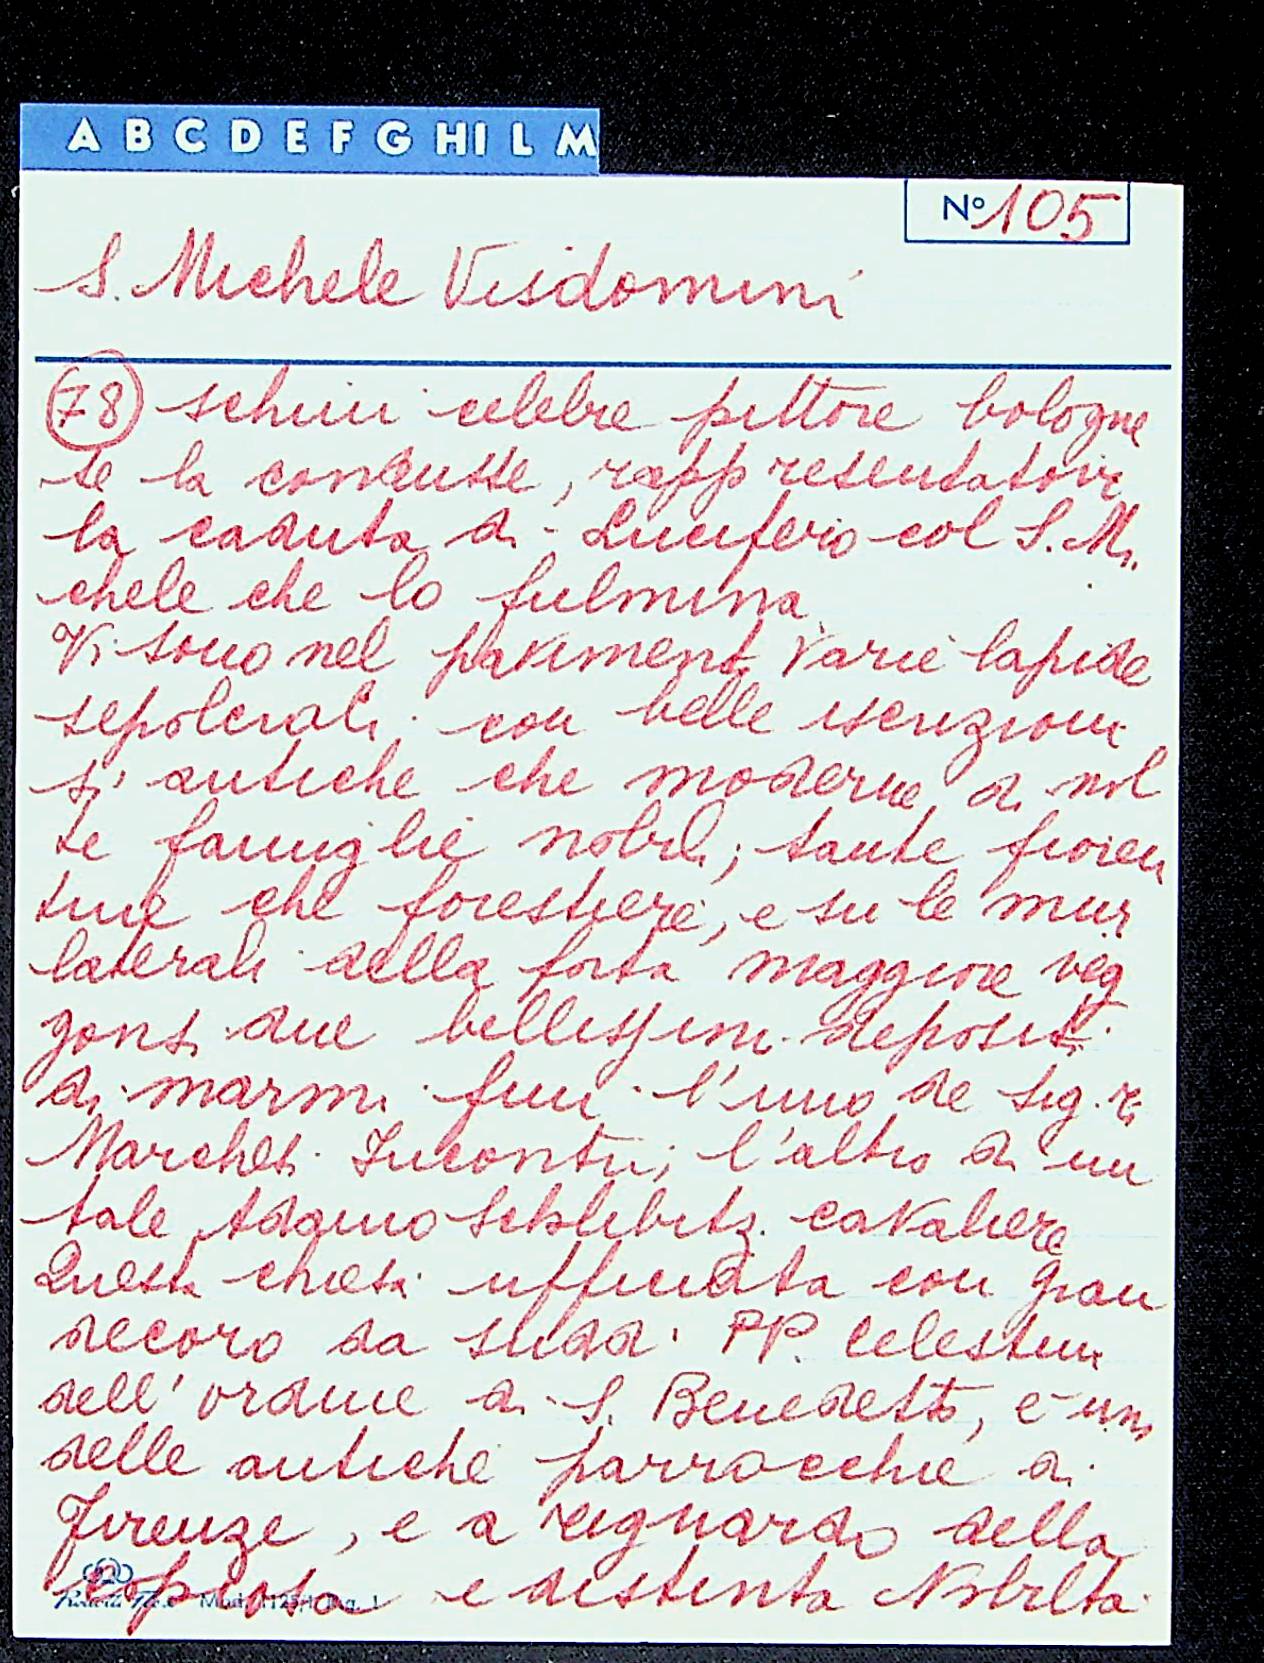 A B C D E F G H I L M
N° 105
S. Michele Visdomini
78 schini celebre pittore bologne
se la condusse, rappresentatovi
la caduta di Lucifero col S. Mi
chele che lo fulmina.
Vi sono nel pavimento varie lapide
sepolcrali con belle iscrizioni
sì antiche che moderne, di mol
te famiglie nobili; tante fioren
tine che forestiere, e su le mura
laterali della porta maggiore veg
gonsi due bellissimi depositi
di marmi fini l'uno de Sig.ri
Marchesi Incontri; l'altro di un
tale Adamo cavaliere
Questa chiesa uffiziata con gran
decoro da sudd. PP. Celestini
dell'ordine di S. Benedetto, è una
delle antiche parrocchie di
Firenze, e a riguardo della
copiosa e distinta Nobiltà